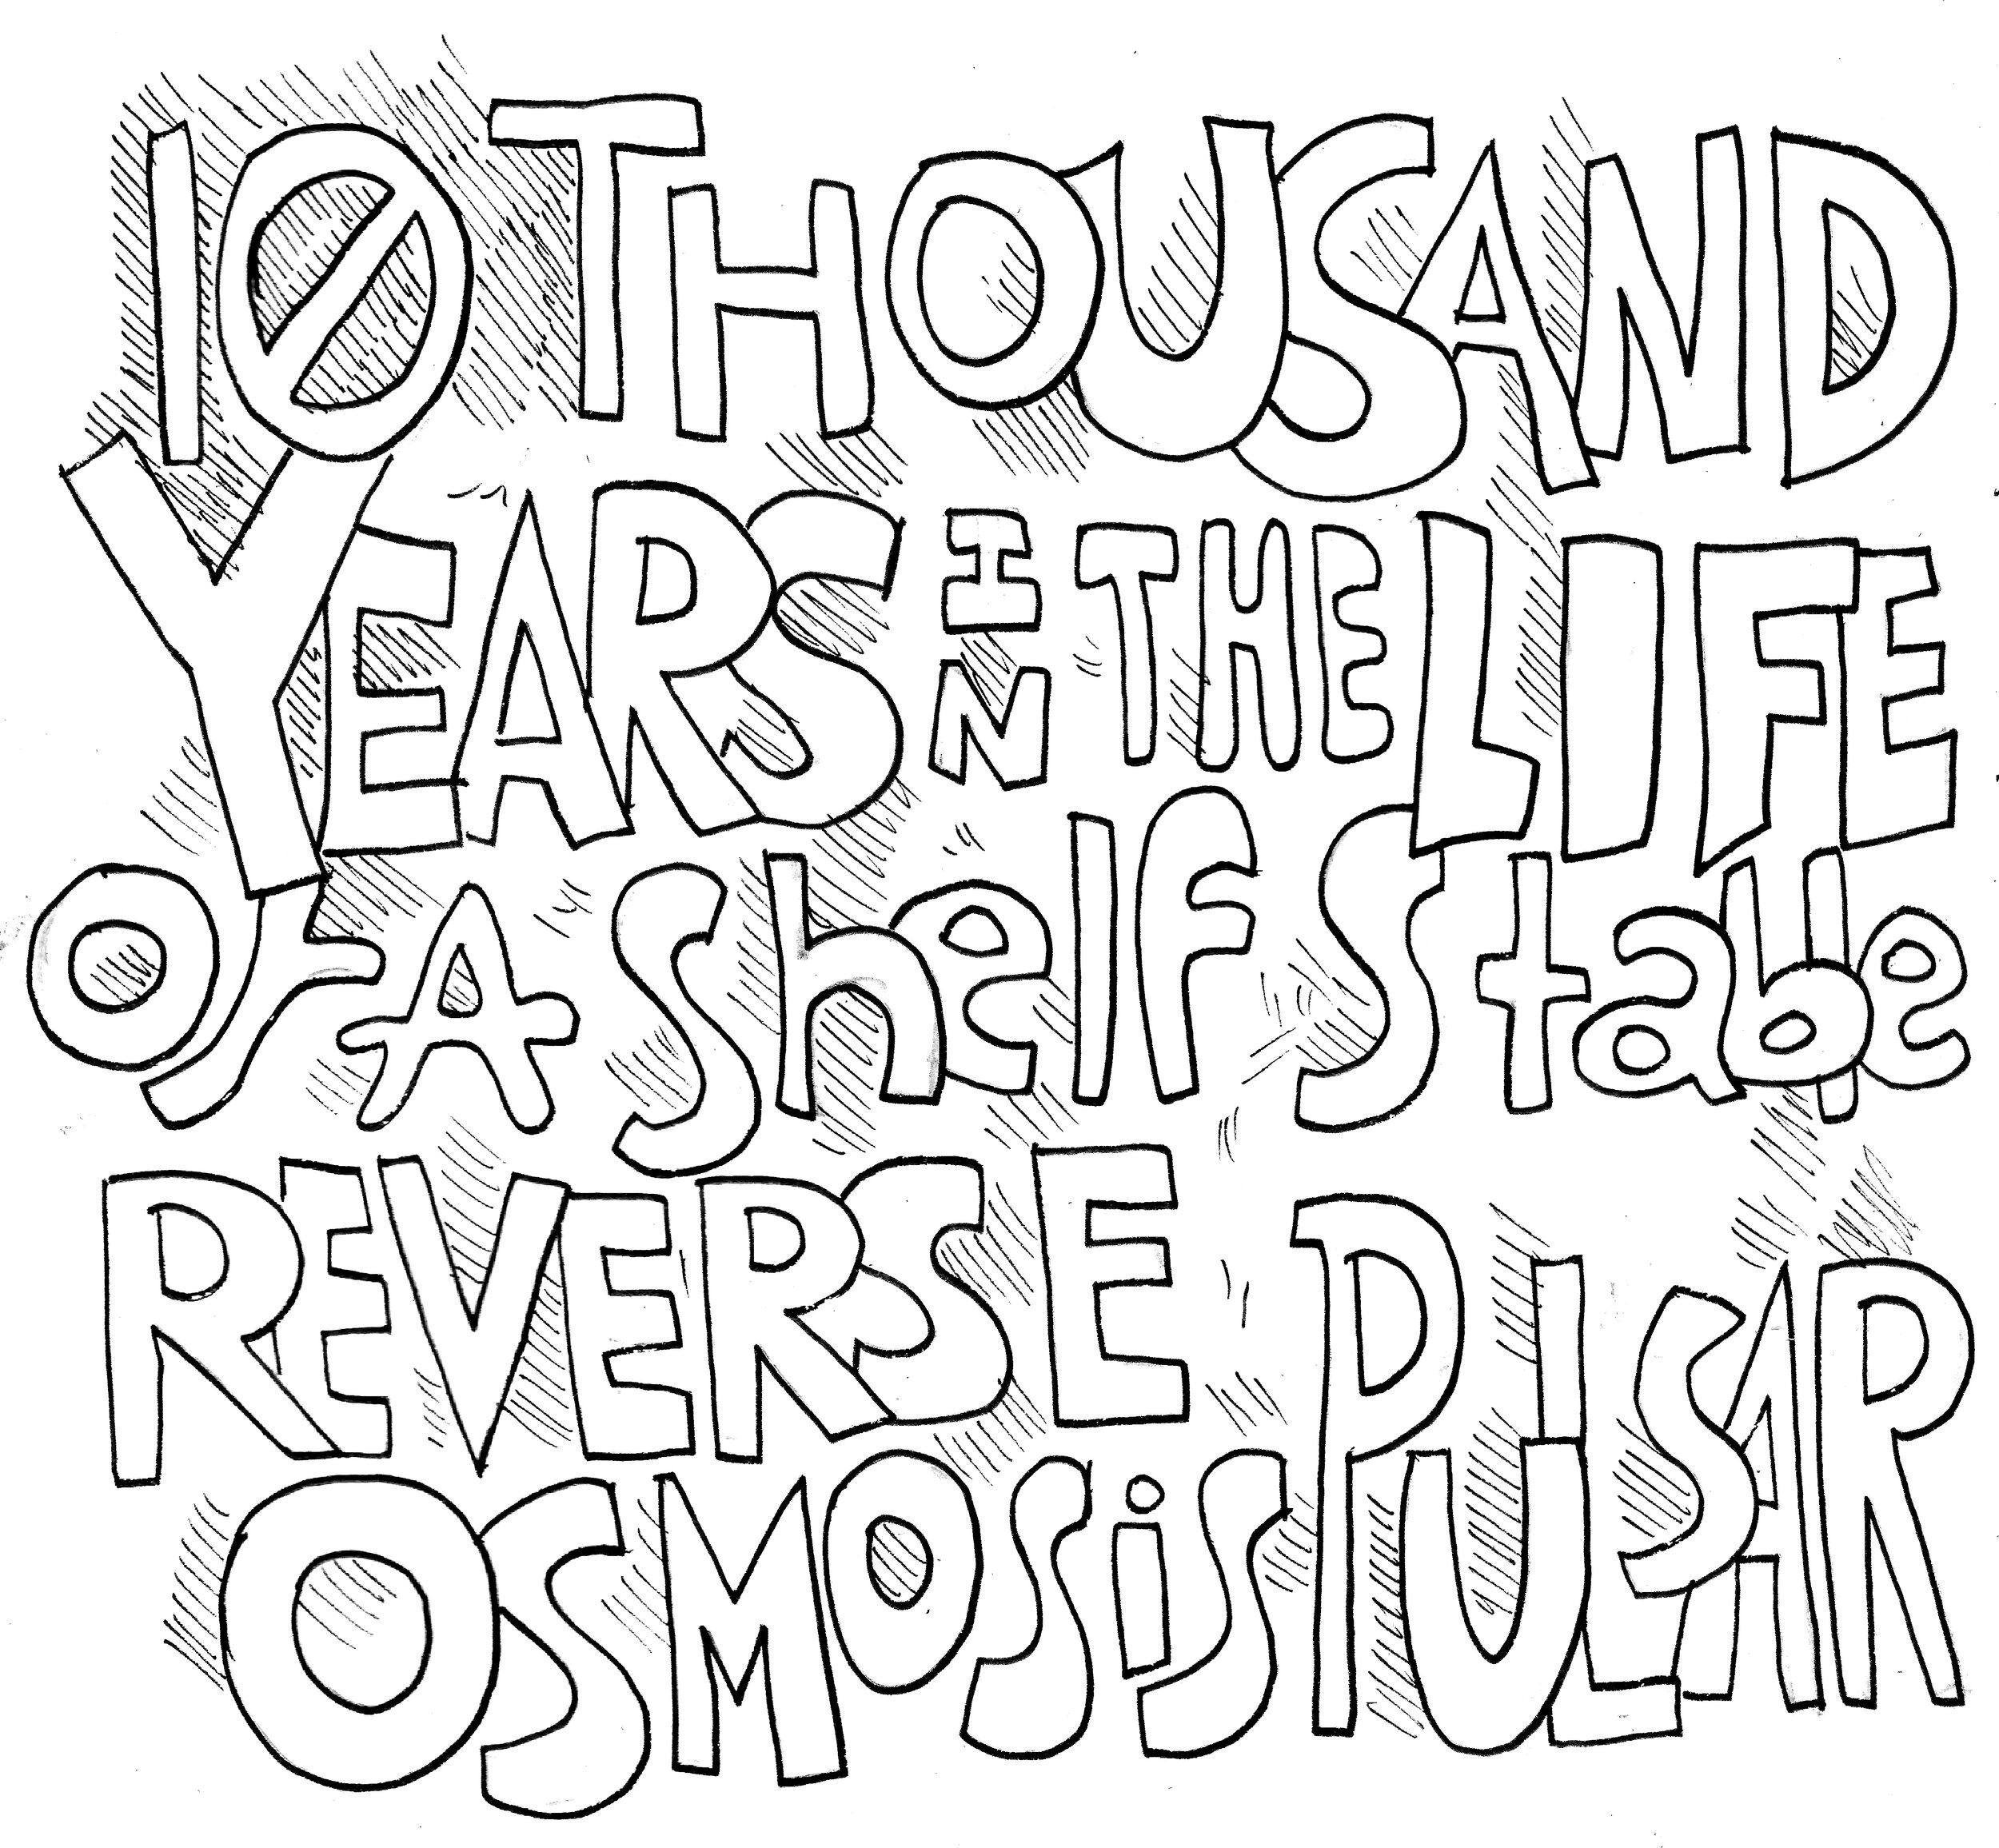 10 THOUSAND
YEARS IN THE LIFE
OF A Shelf Stable
REVERSE PULSAR
OSMOSiS